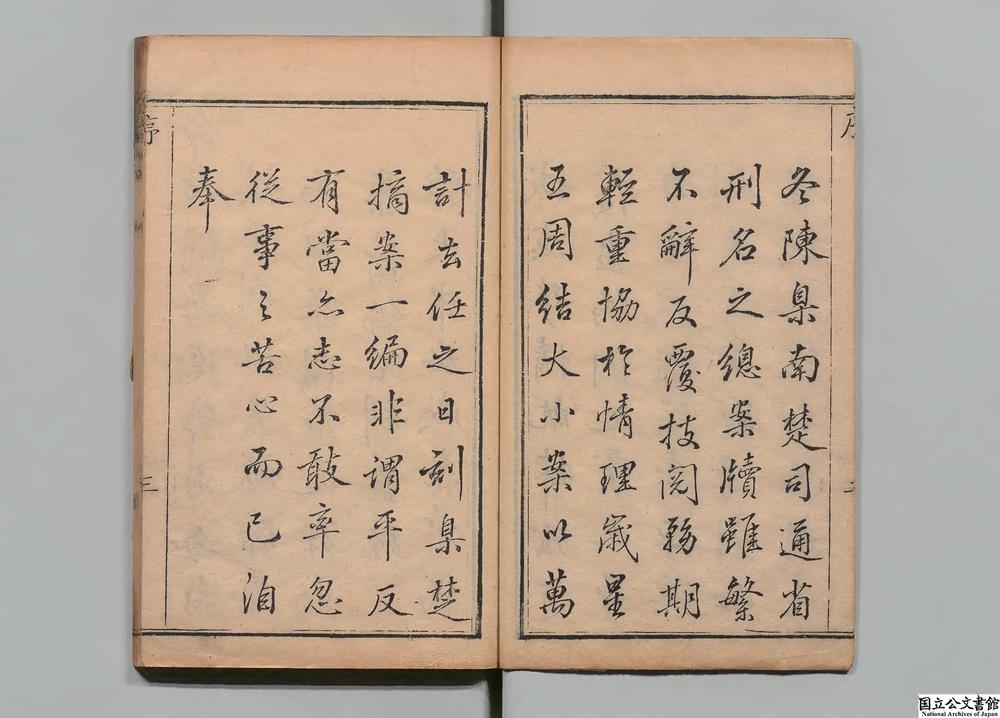 冬陳臬南楚司通省
刑名之總案牘雖繁
不辭反覆披閱務期
輕重協於情理歲星
五周結大小案以萬
計去任之日刻臬楚
摘案一編非謂平反
有當亦志不敢率忽
從事之苦心而已洎
奉
序
三
国立公文書館
National Archives of Japan